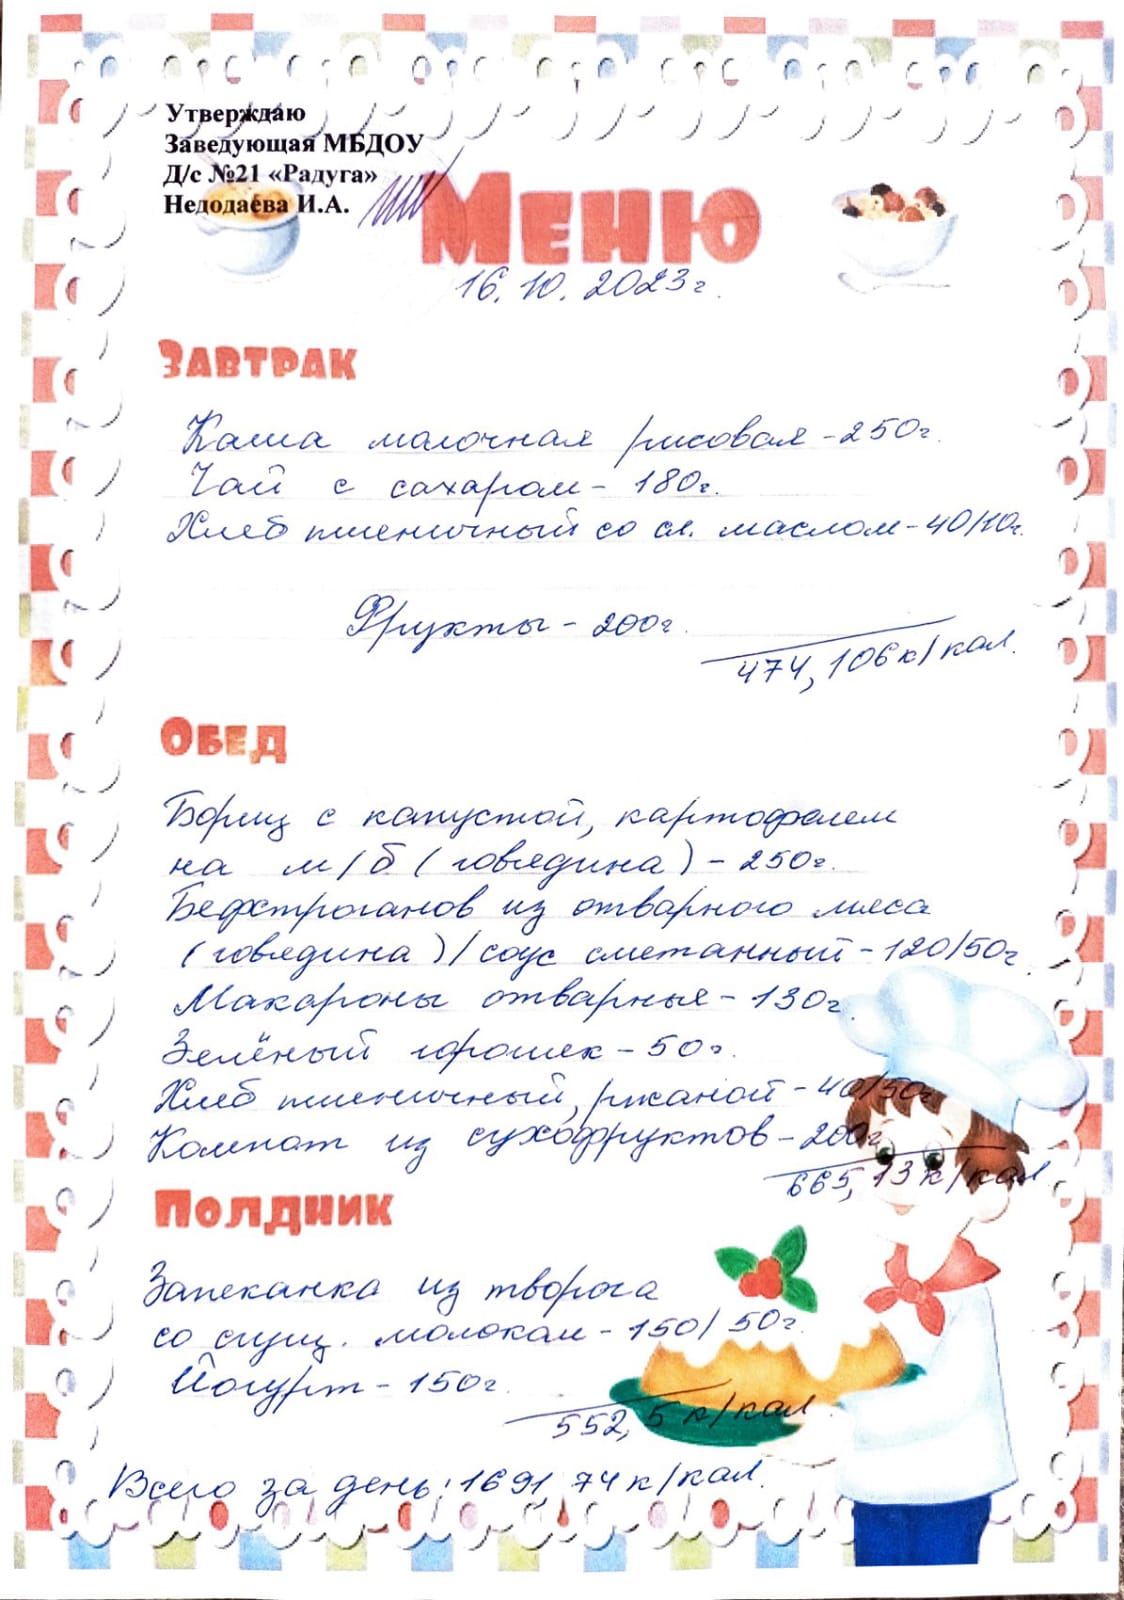 Утверждаю
Заведующая МБДОУ
Д/с №21 «Радуга»
Недодаева И.А.
Меню
16.10.2023г.
Завтрак
Каша молочная рисовая - 250г.
Чай с сахаром - 180г.
Хлеб пшеничный со сл. маслом - 40/10г.
Фрукты - 200г.
474,106 к/кал.
Обед
Борщ с капустой, картофелем
на м/б (говядина) - 250г.
Бефстроганов из отварного мяса
(говядина)/соус сметанный - 120/50г.
Макароны отварные - 130г.
Зелёный горошек - 50г.
Хлеб пшеничный, ржаной - 40/50г
Компот из сухофруктов - 200г
665,13 к/кал
Полдник
Запеканка из творога
со сгущ. молоком - 150/50г.
Йогурт - 150г.
552,5 к/кал.
Всего за день: 1691,74 к/кал.